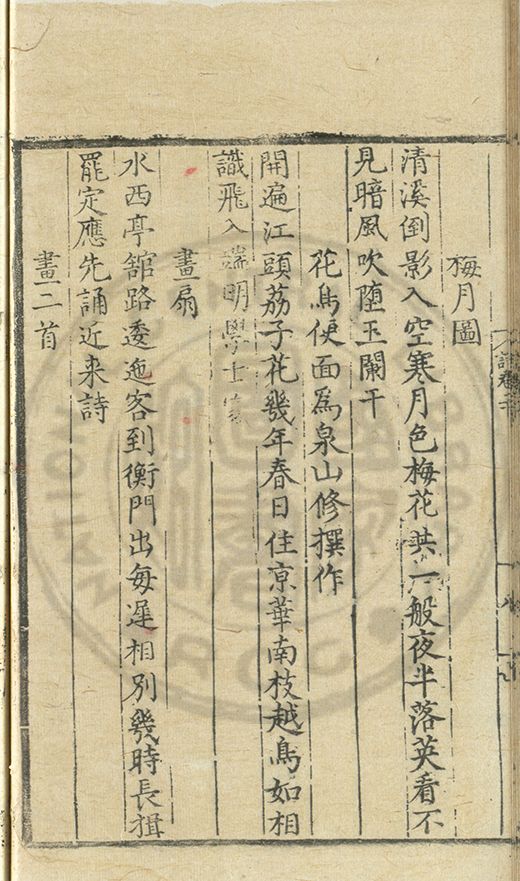 梅月圖
清溪倒影入空寒月色梅花共一般夜半落英看不
見暗風吹堕玉闌干
花鳥便面爲泉山修撰作
開遍江頭荔子花幾年春日住京華南枝越鳥如相
識飛入端明學士家
畫扇
水西亭館路委迤客到衡門出每遲相別幾時長揖
罷定應先誦近来詩
畫二首